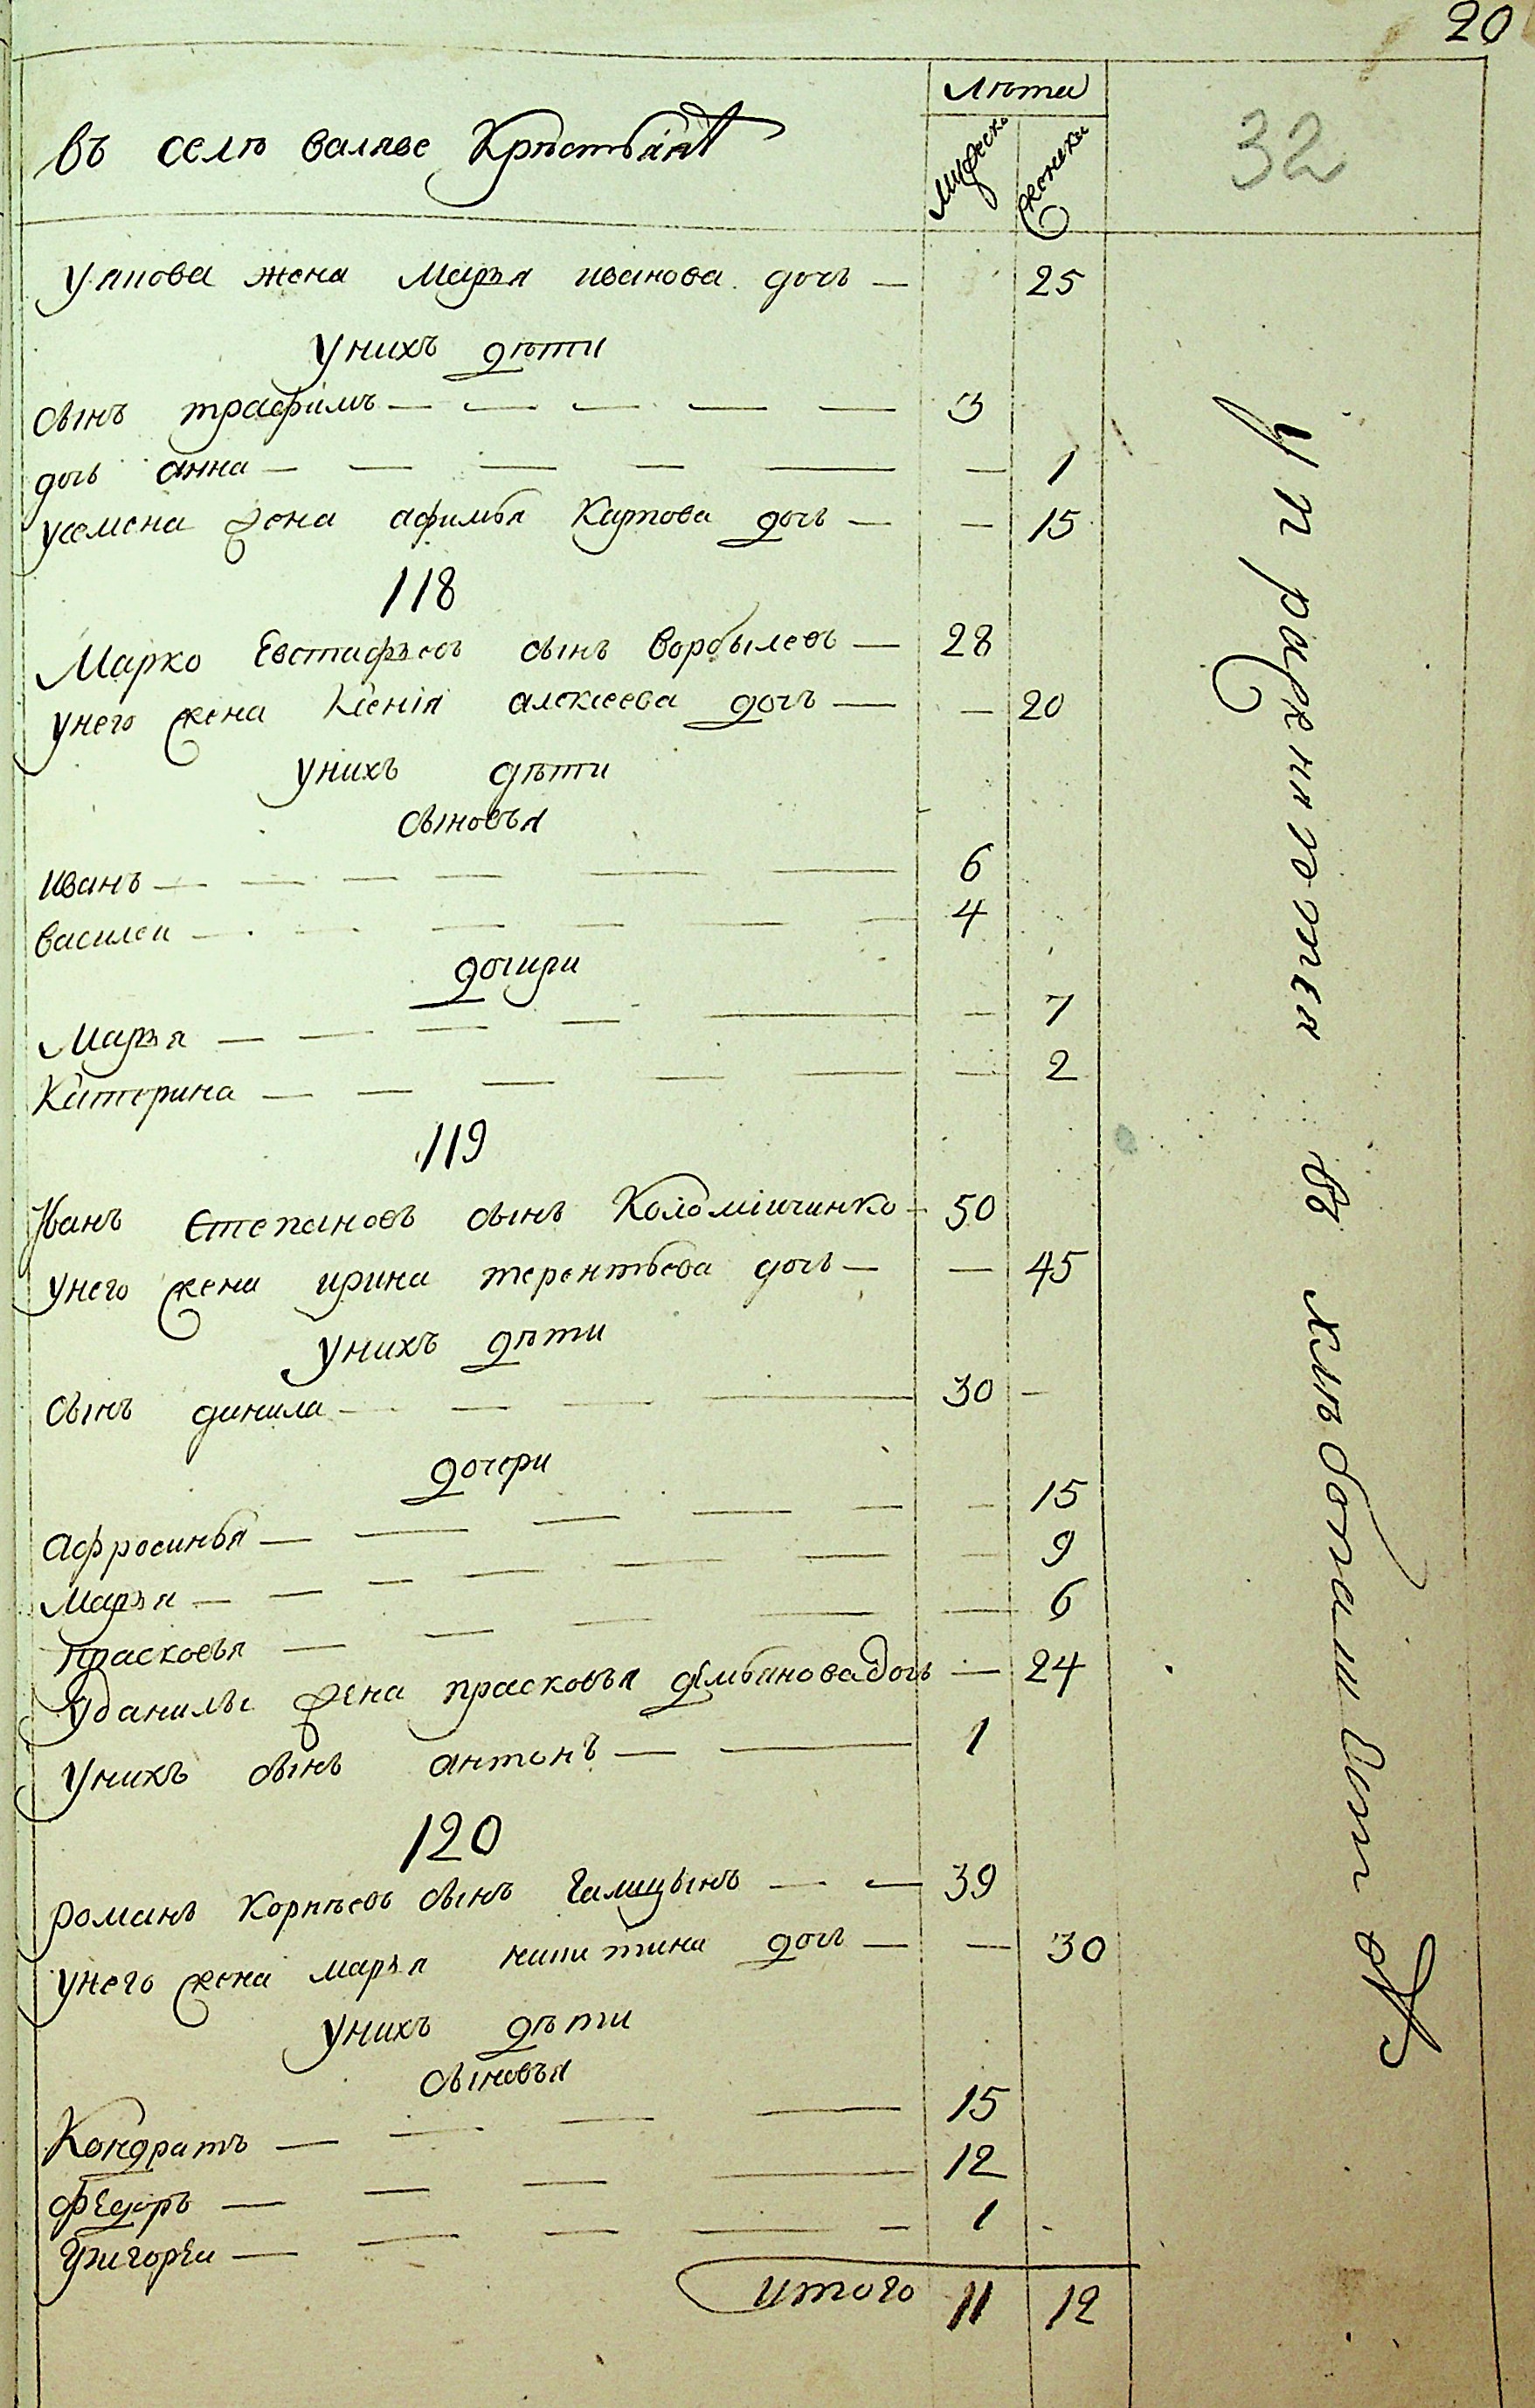 20
въ селѣ валяве Крѣстьянѣ
лѣта
мужеска
женска
32
Уянова жена Марья иванова дочь — 25
Унихъ дѣти
сынъ трафимъ — 3
дочь анна — 1
усемена жена афимья Карпова дочь — 15
118
Марко Евстафьевъ сынъ Воробьлевъ — 28
унего жена Ксенія алексеева дочь — 20
унихъ дѣти
сыновья
иванъ — 6
василеи — 4
дочири
Марья — 7
Катерина — 2
119
Иванъ Степановъ сынъ Коломіичинко 50
унего жена ирина терентьева дочь — 45
Унихъ дѣти
сынъ данила — 30 —
дочери
Афросинья — 15
Марья — 9
прасковья — 6
Уданилы жена прасковья демьяновадочь — 24
Унихъ сынъ антонъ — 1
120
романъ Корнѣевъ сынъ Галицынъ — 39
унего жена марья никитина дочь — 30
Унихъ дѣти
сыновья
Кондратъ — 15
Федоръ — 12
Григореи — 1
итого 11 12
упражняются въ хлѣбопашестве